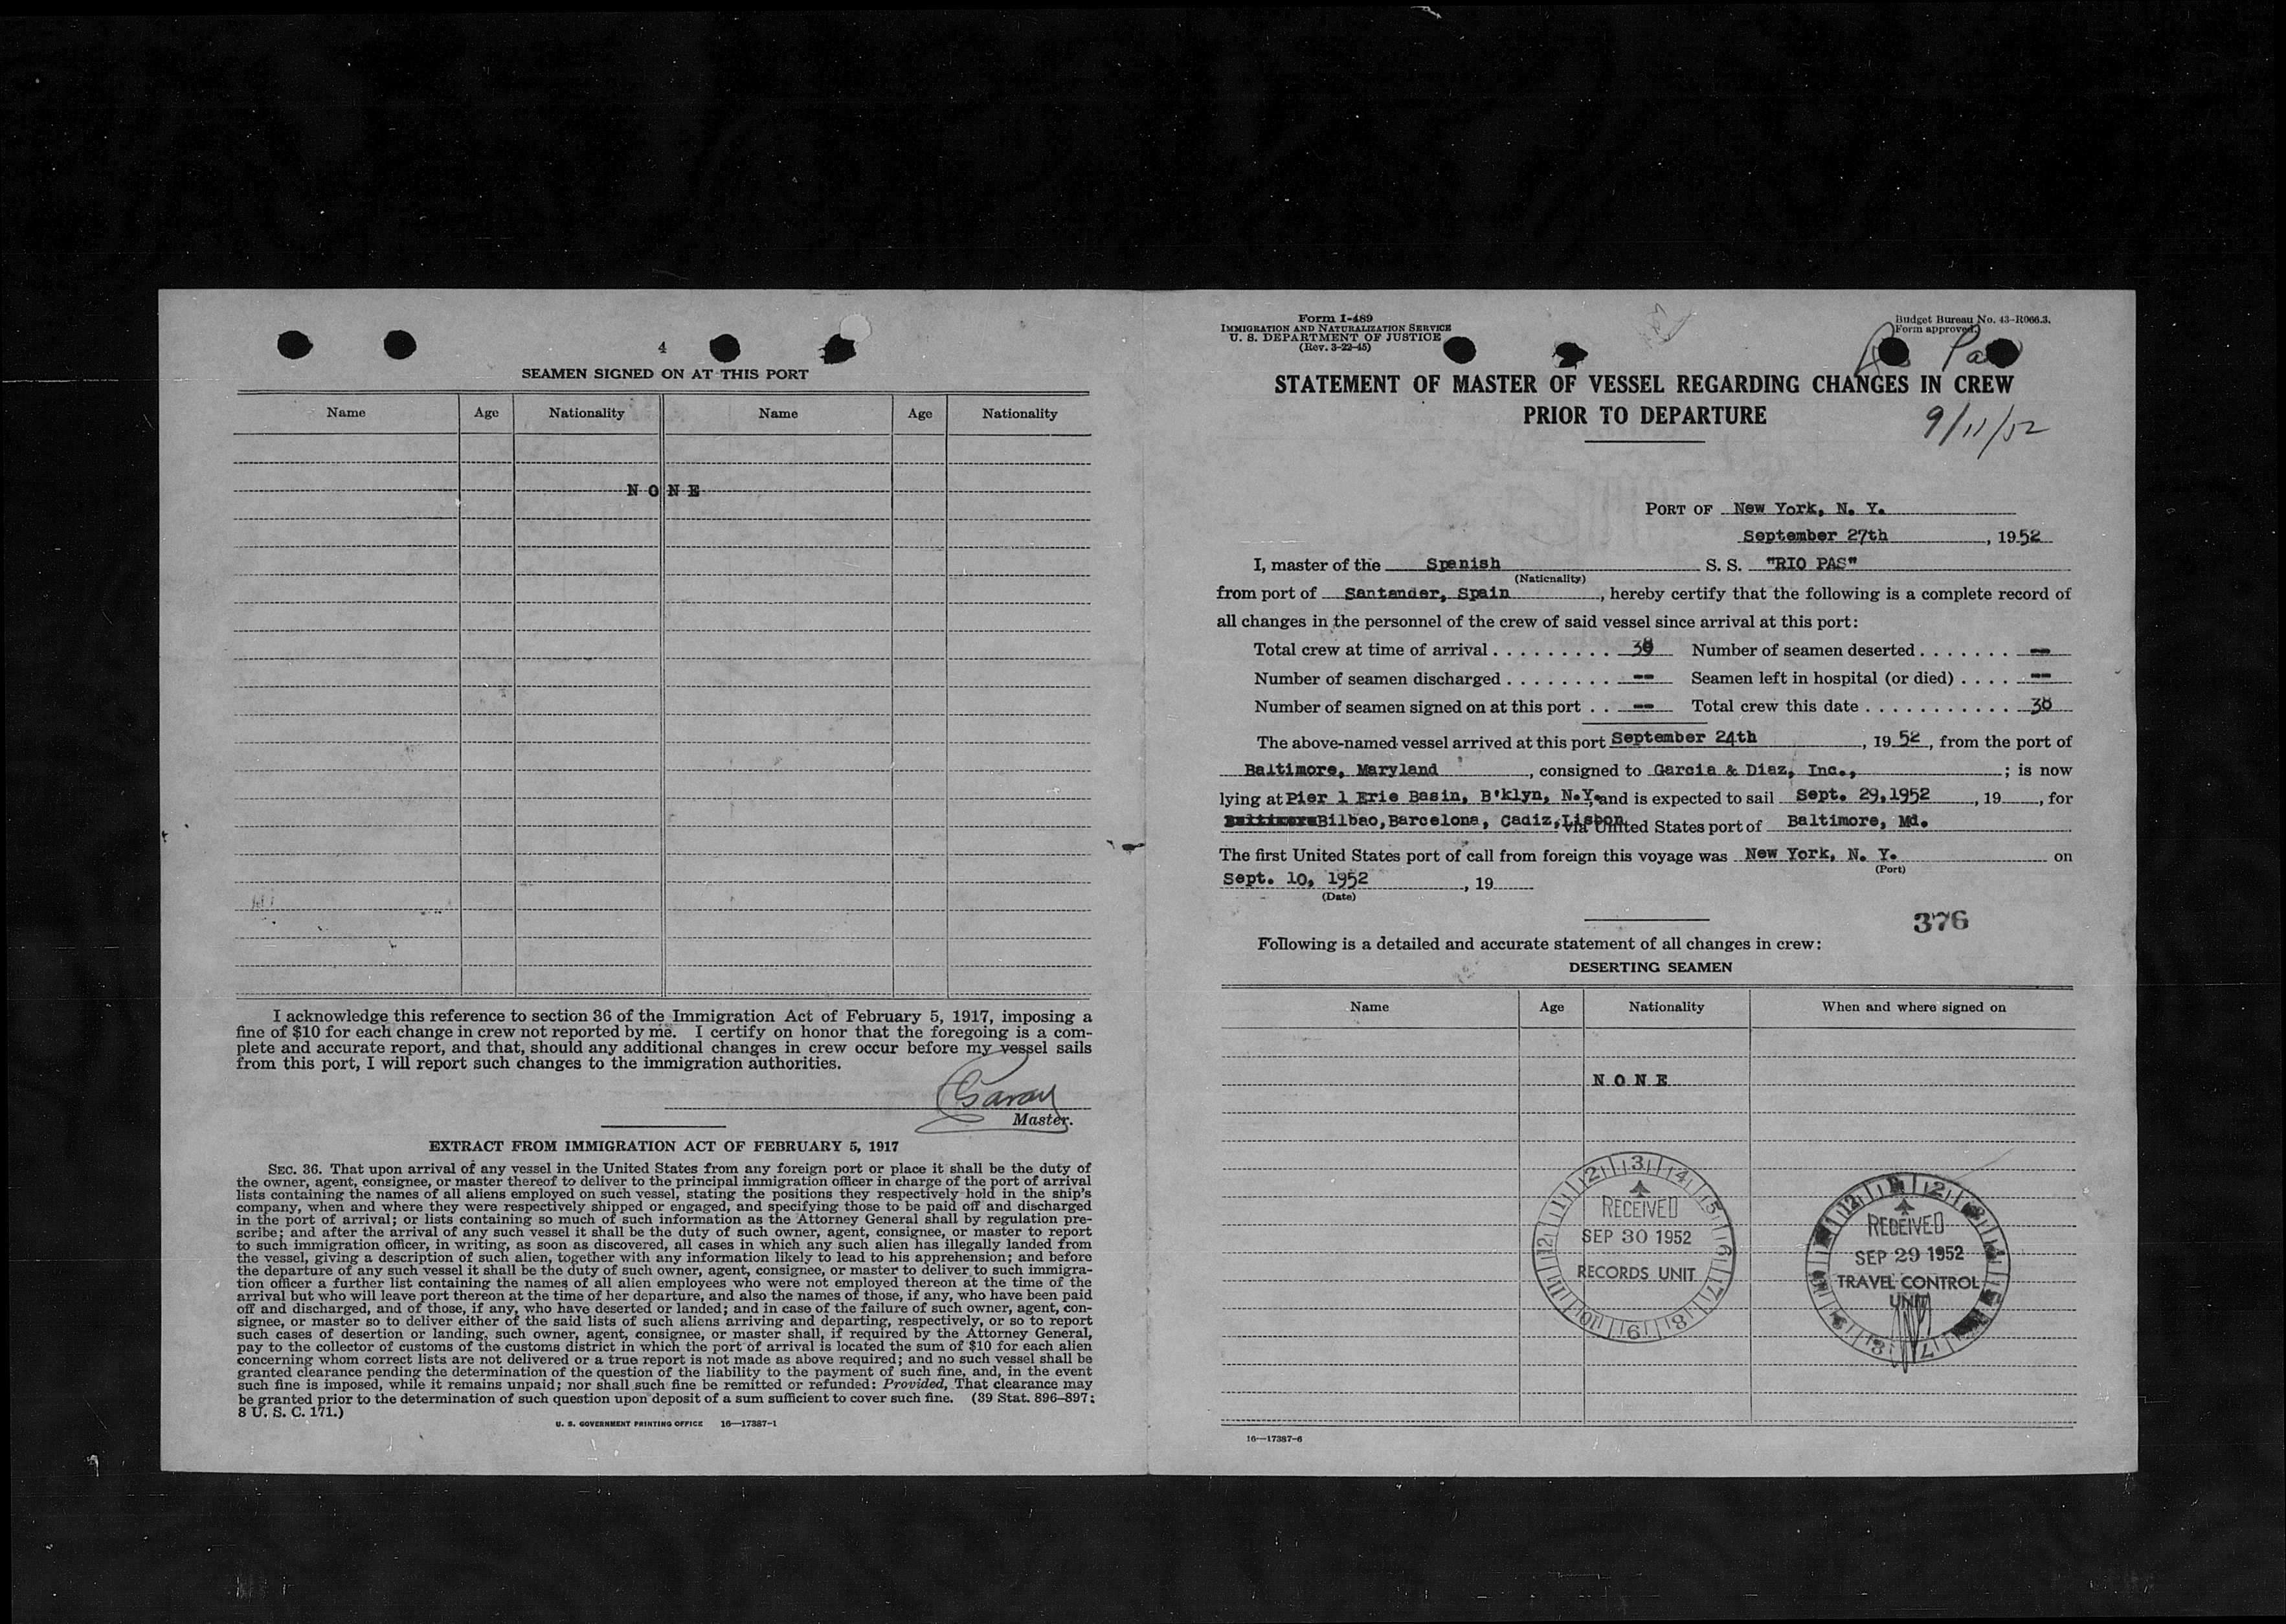 4
SEAMEN SIGNED ON AT THIS PORT
Name Age Nationality Name Age Nationality
NONE
I acknowledge this reference to section 36 of the Immigration Act of February 5, 1917, imposing a
fine of $10 for each change in crew not reported by me. I certify on honor that the foregoing is a com-
plete and accurate report, and that, should any additional changes in crew occur before my vessel sails
from this port, I will report such changes to the immigration authorities.
Garay
Master.
EXTRACT FROM IMMIGRATION ACT OF FEBRUARY 5, 1917
SEC. 36. That upon arrival of any vessel in the United States from any foreign port or place it shall be the duty of
the owner, agent, consignee, or master thereof to deliver to the principal immigration officer in charge of the port of arrival
lists containing the names of all aliens employed on such vessel, stating the positions they respectively hold in the ship's
company, when and where they were respectively shipped or engaged, and specifying those to be paid off and discharged
in the port of arrival; or lists containing so much of such information as the Attorney General shall by regulation pre-
scribe; and after the arrival of any such vessel it shall be the duty of such owner, agent, consignee, or master to report
to such immigration officer, in writing, as soon as discovered, all cases in which any such alien has illegally landed from
the vessel, giving a description of such alien, together with any information likely to lead to his apprehension; and before
the departure of any such vessel it shall be the duty of such owner, agent, consignee, or master to deliver to such immigra-
tion officer a further list containing the names of all alien employees who were not employed thereon at the time of the
arrival but who will leave port thereon at the time of her departure, and also the names of those, if any, who have been paid
off and discharged, and of those, if any, who have deserted or landed; and in case of the failure of such owner, agent, con-
signee, or master so to deliver either of the said lists of such aliens arriving and departing, respectively, or so to report
such cases of desertion or landing, such owner, agent, consignee, or master shall, if required by the Attorney General,
pay to the collector of customs of the customs district in which the port of arrival is located the sum of $10 for each alien
concerning whom correct lists are not delivered or a true report is not made as above required; and no such vessel shall be
granted clearance pending the determination of the question of the liability to the payment of such fine, and, in the event
such fine is imposed, while it remains unpaid; nor shall such fine be remitted or refunded: Provided, That clearance may
be granted prior to the determination of such question upon deposit of a sum sufficient to cover such fine. (39 Stat. 896-897;
8 U. S. C. 171.)
U. S. GOVERNMENT PRINTING OFFICE 16—17387-1
Form I-489
IMMIGRATION AND NATURALIZATION SERVICE
U. S. DEPARTMENT OF JUSTICE
(Rev. 3-22-45)
Budget Bureau No. 43-R066.3.
Form approved.
Pas
STATEMENT OF MASTER OF VESSEL REGARDING CHANGES IN CREW
PRIOR TO DEPARTURE
9/11/52
PORT OF New York, N. Y.
September 27th, 1952
I, master of the Spanish S. S. "RIO PAS"
(Nationality)
from port of Santander, Spain, hereby certify that the following is a complete record of
all changes in the personnel of the crew of said vessel since arrival at this port:
Total crew at time of arrival . . . . . . . . . . 38 Number of seamen deserted . . . . . . . --
Number of seamen discharged . . . . . . . . --- Seamen left in hospital (or died) . . . . ---
Number of seamen signed on at this port . . -- Total crew this date . . . . . . . . . . . . 38
The above-named vessel arrived at this port September 24th, 1952, from the port of
Baltimore, Maryland, consigned to Garcia & Diaz, Inc.,; is now
lying at Pier 1 Erie Basin, B'klyn, N.Y. and is expected to sail Sept. 29,1952, 19, for
Bilbao,Barcelona, Cadiz,Lisbon via United States port of Baltimore, Md.
The first United States port of call from foreign this voyage was New York, N. Y. on
(Port)
Sept. 10, 1952, 19
(Date)
376
Following is a detailed and accurate statement of all changes in crew:
DESERTING SEAMEN
Name Age Nationality When and where signed on
NONE
RECEIVED
SEP 30 1952
RECORDS UNIT
RECEIVED
SEP 29 1952
TRAVEL CONTROL
UNIT
16—17387-6